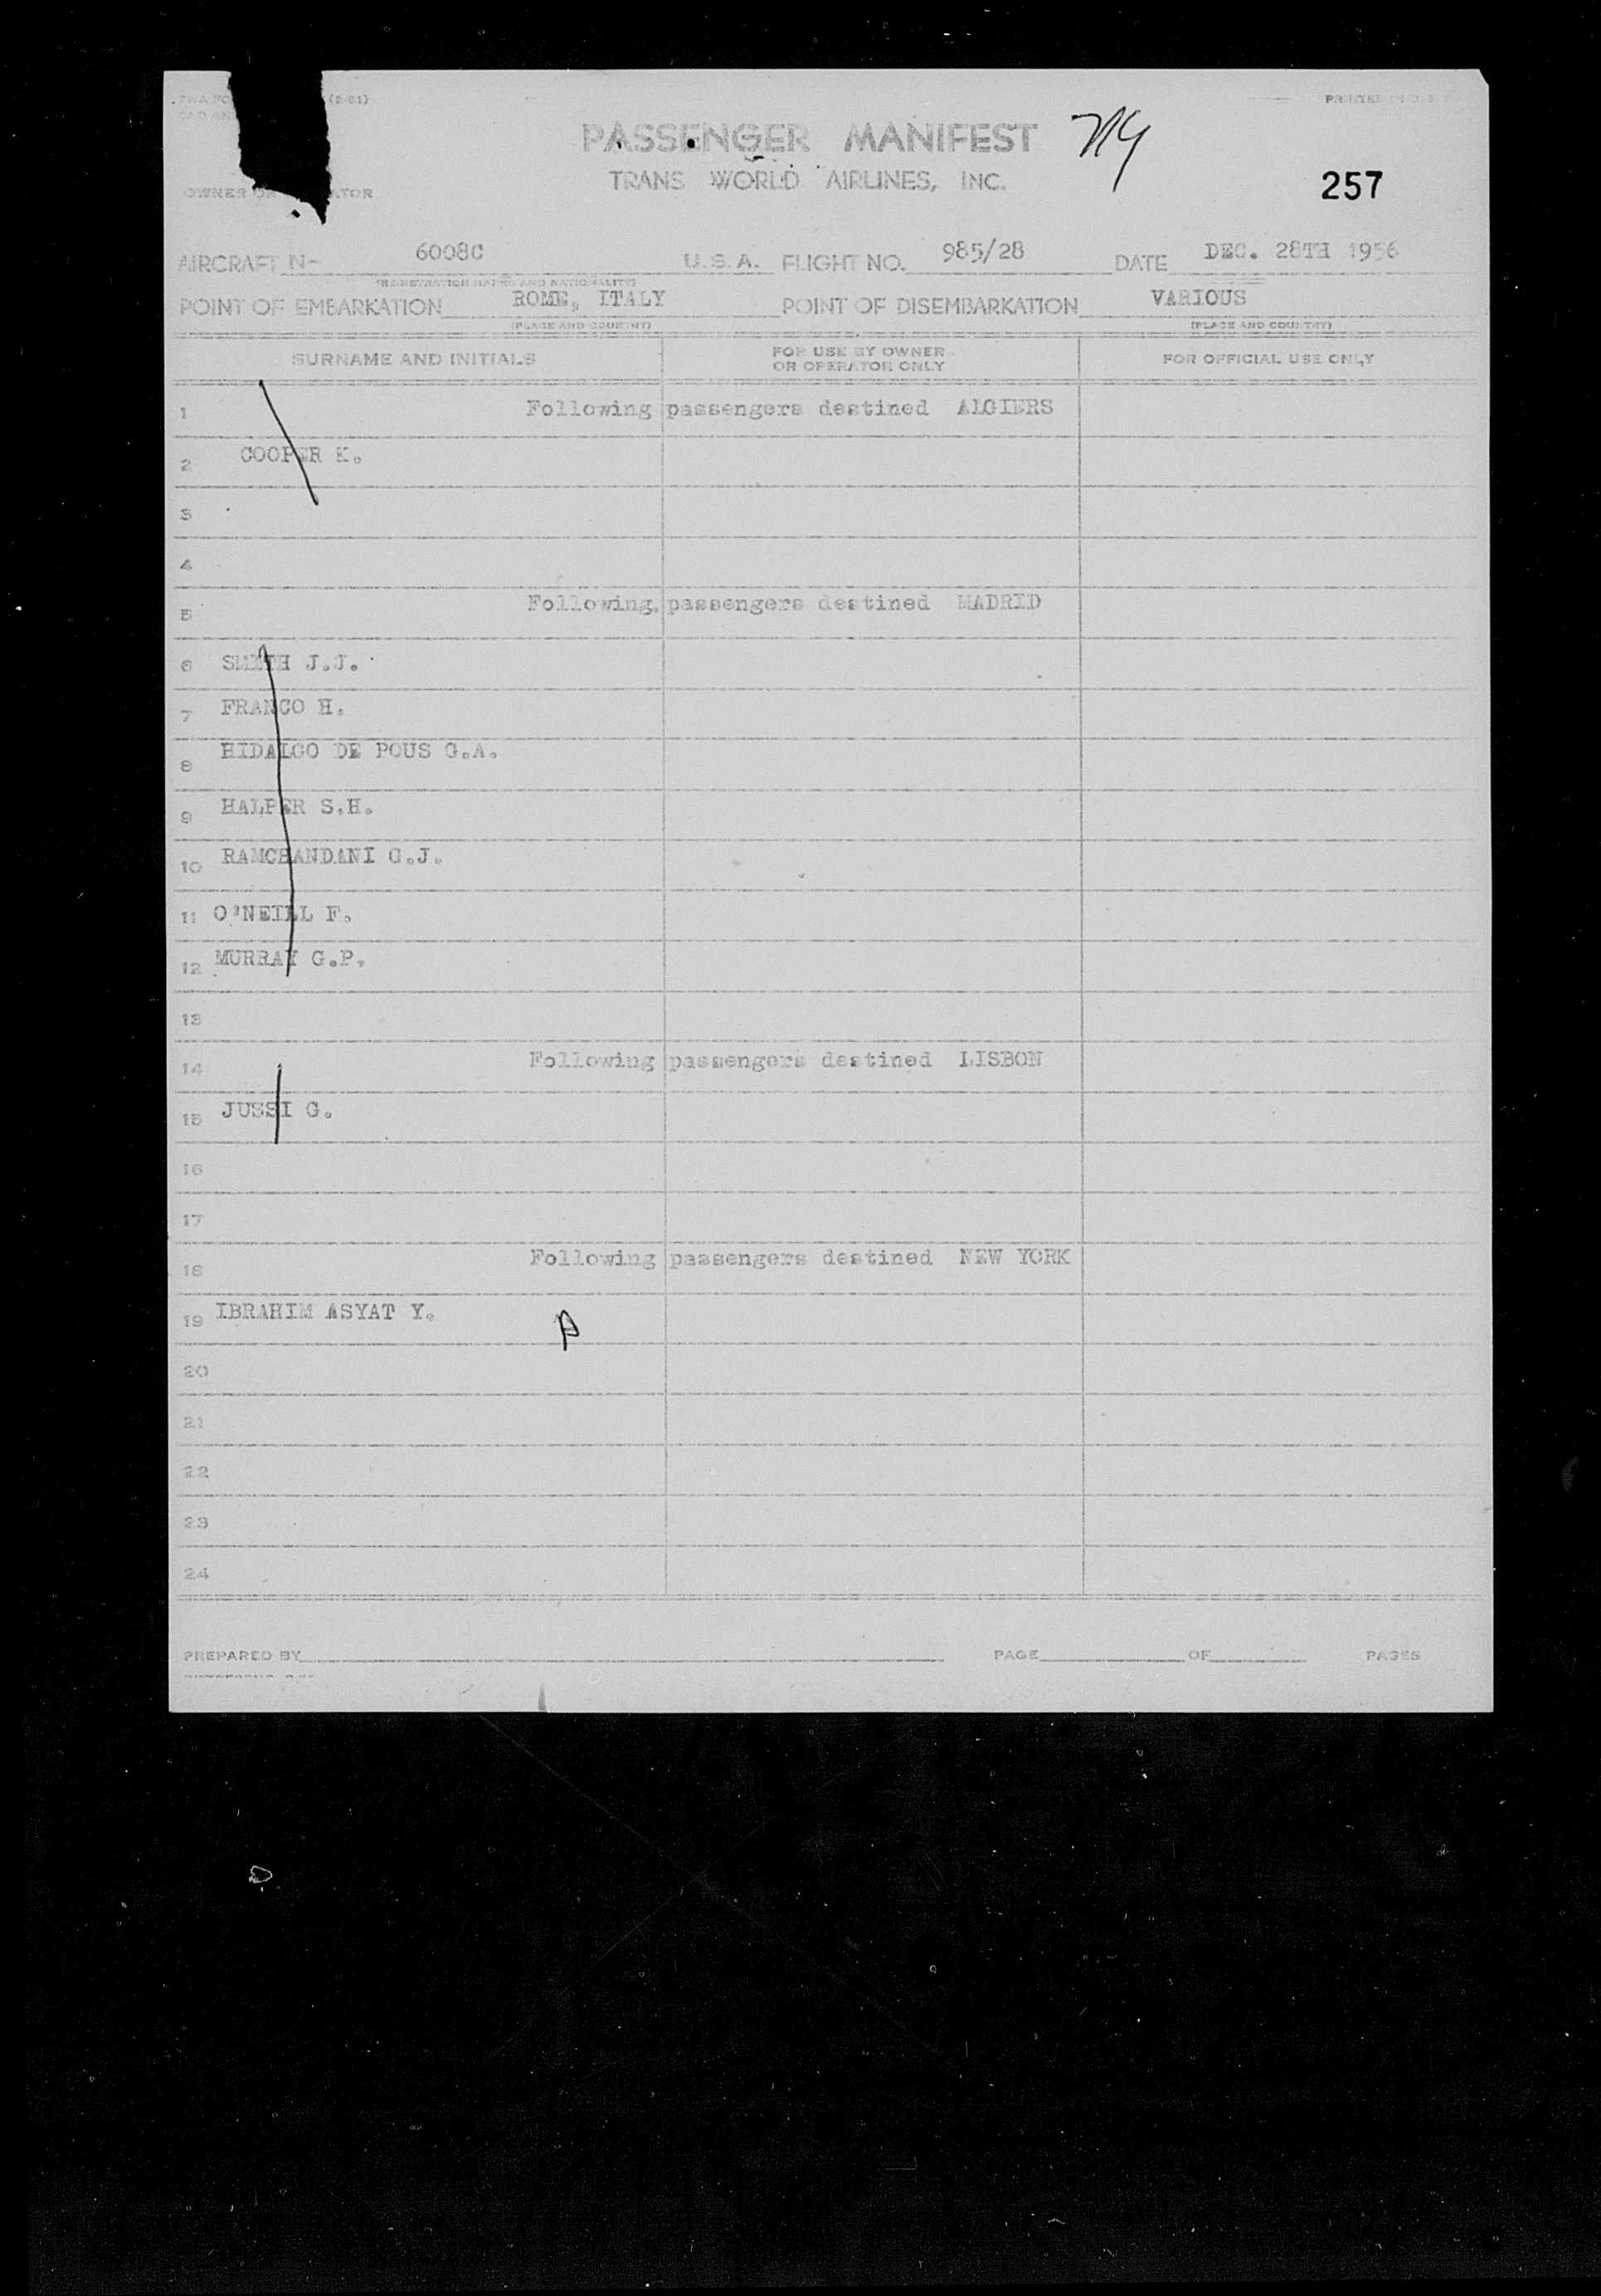 (5-51)
PASSENGER MANIFEST NY
TRANS WORLD AIRLINES, INC.
257
AIRCRAFT N- 6008C U.S.A. FLIGHT NO. 985/28 DATE DEC. 28TH 1956
(REGISTRATION MARKS AND NATIONALITY)
POINT OF EMBARKATION ROME, ITALY POINT OF DISEMBARKATION VARIOUS
(PLACE AND COUNTRY) (PLACE AND COUNTRY)
SURNAME AND INITIALS FOR USE BY OWNER OR OPERATOR ONLY FOR OFFICIAL USE ONLY
1 Following passengers destined ALGIERS
2 COOPER K.
3
4
5 Following passengers destined MADRID
6 SMITH J.J.
7 FRANCO H.
8 HIDALGO DE POUS G.A.
9 HALPER S.H.
10 RAMCHANDANI G.J.
11 O'NEILL F.
12 MURRAY G.P.
13
14 Following passengers destined LISBON
15 JUSSI G.
16
17
18 Following passengers destined NEW YORK
19 IBRAHIM ASYAT Y. P
20
21
22
23
24
PREPARED BY PAGE OF PAGES